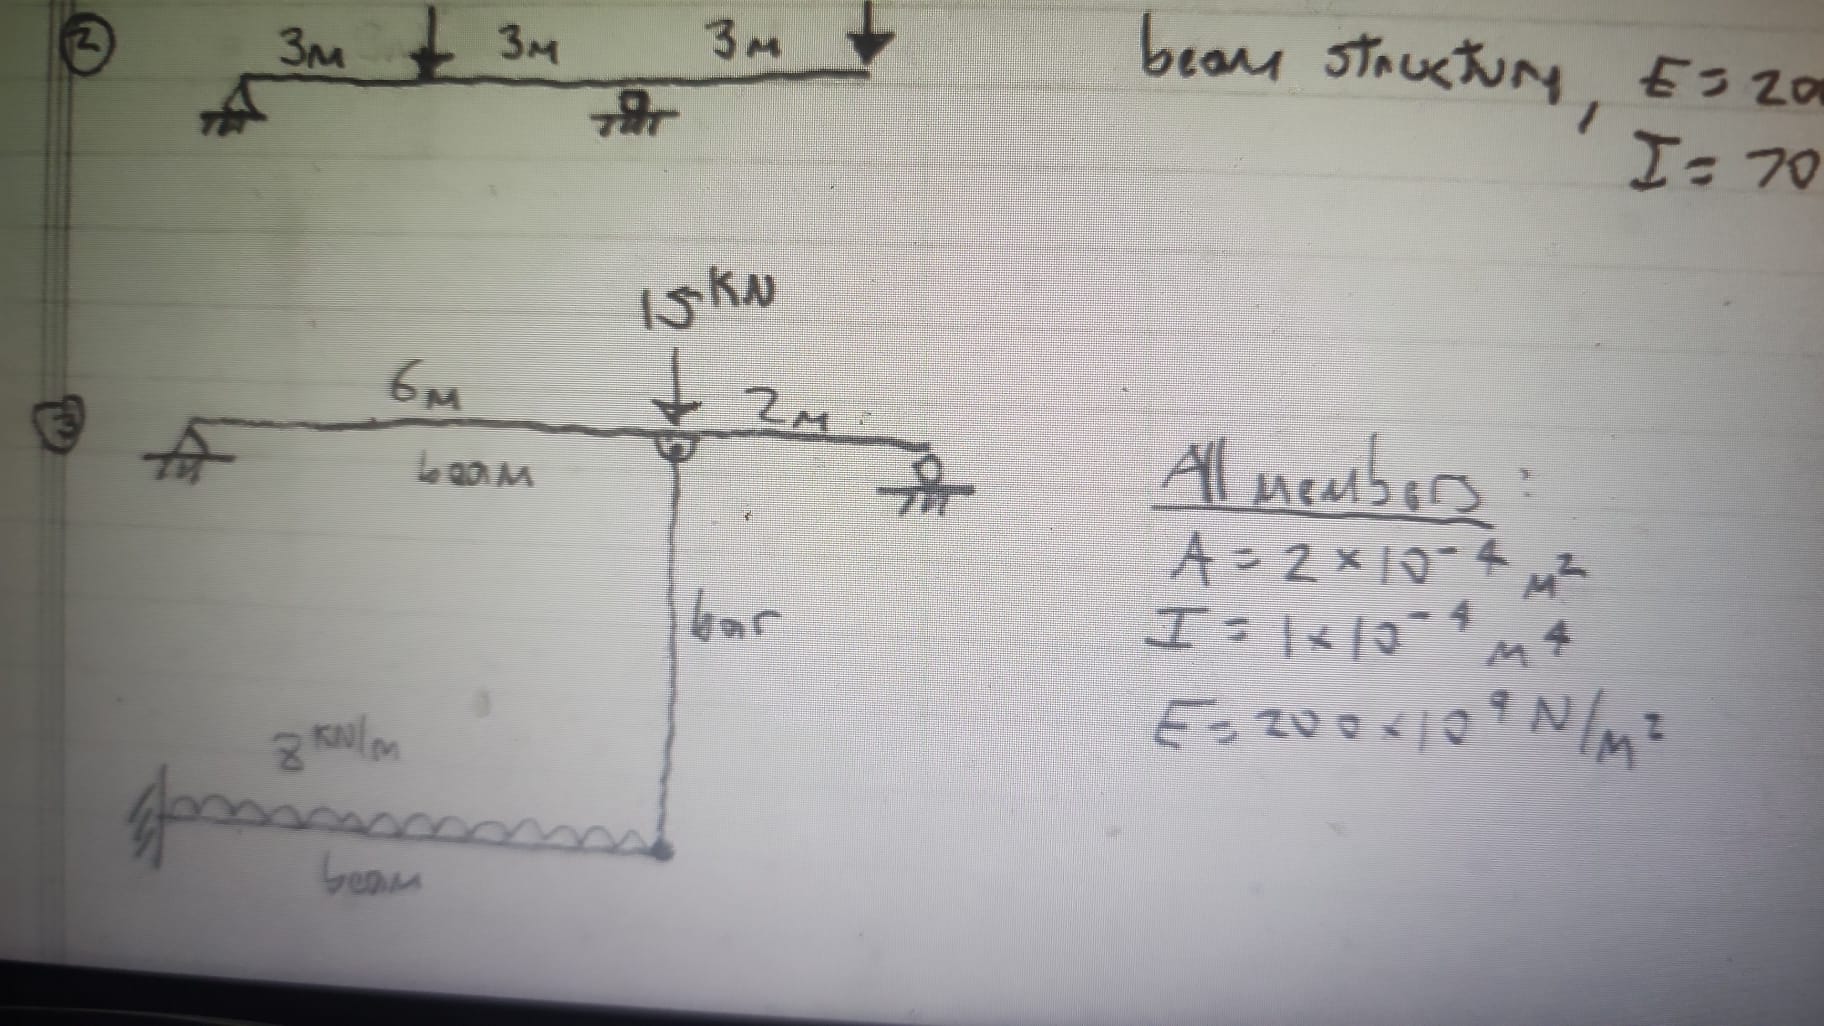 2
3M 3M 3M
beam structure, E = 20
I = 70
15 KN
3
6M 2M
beam
All members:
A = 2 × 10⁻⁴ M²
bar
I = 1 × 10⁻⁴ M⁴
E = 200 × 10⁹ N/M²
8 KN/m
beam